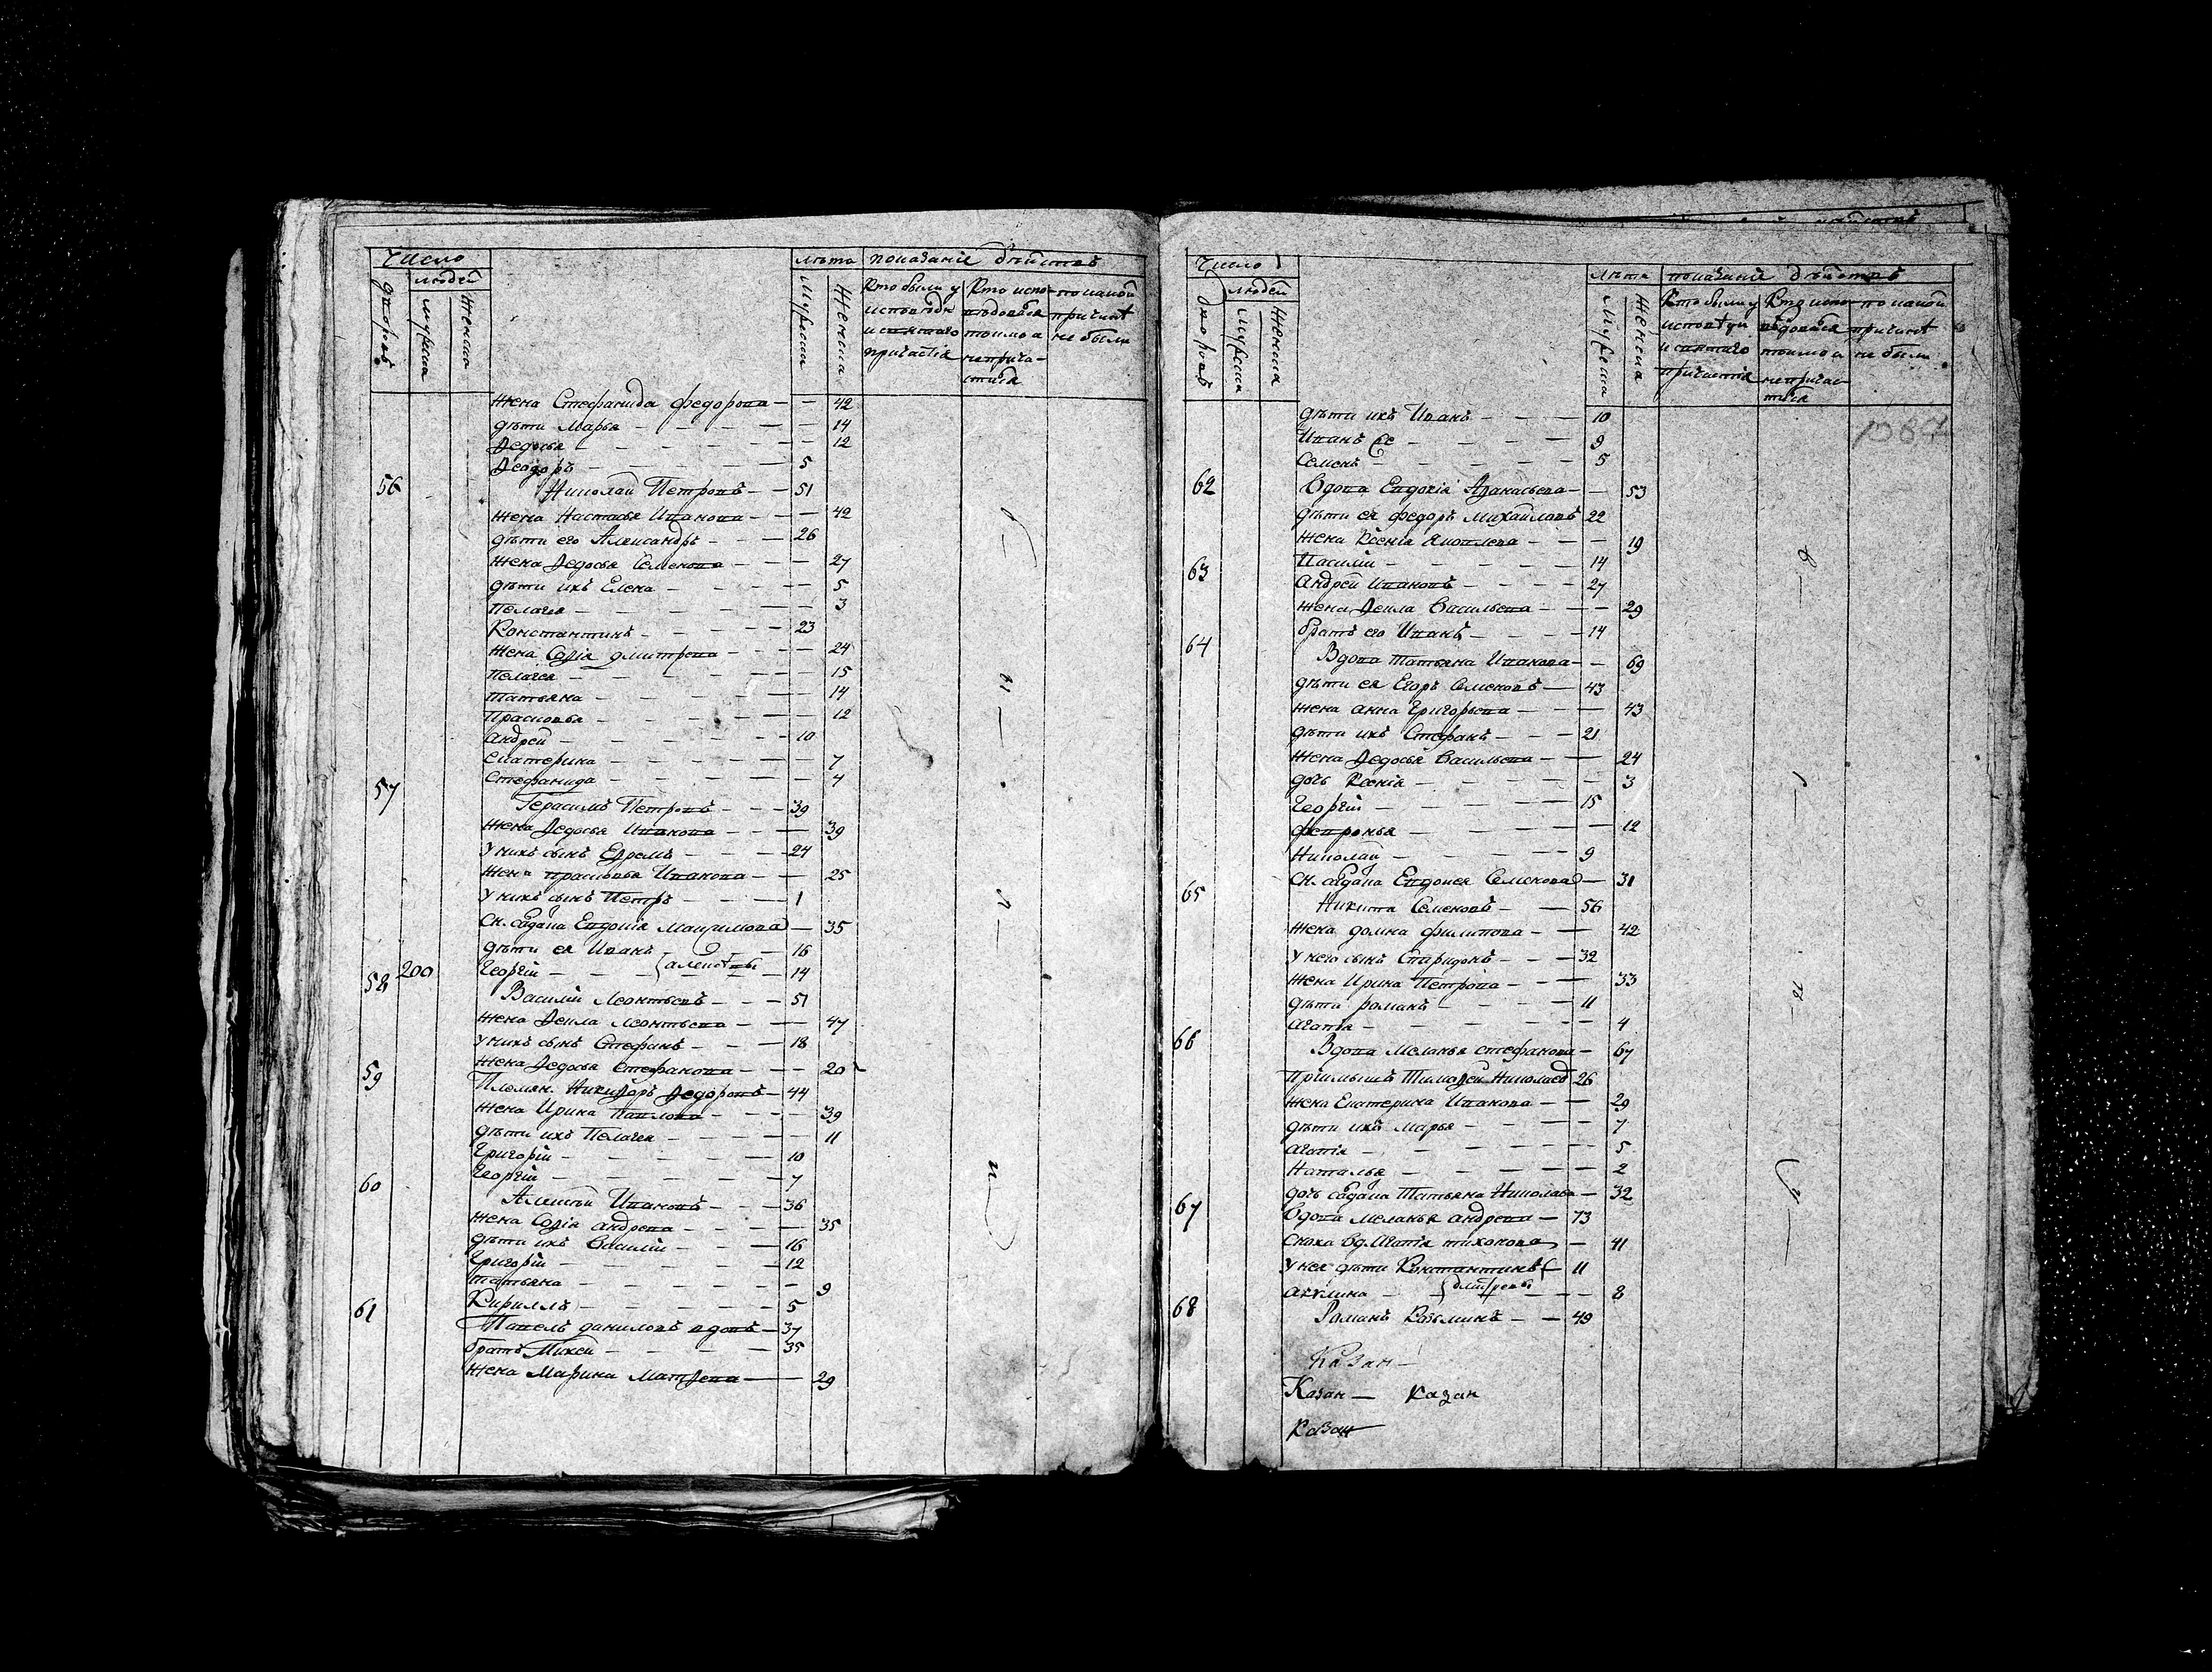 Число
людей
дворовъ
мужска
женска
лѣта
мужски
женска
показаніе дѣйствъ
Кто были у исповѣди и святаго причастія
Кто исповѣдовался токмо а не причастися
по какой причинѣ не были
Жена Стефанида Федорова — — 42
дѣти Марья — — 14
Ѳедосья — — 12
Ѳеодоръ — 5
56 Николай Петровъ — 51
жена Настасья Иванова — — 42
дѣти его Александръ — 26
жена Ѳедосья Семенова — 27
дѣти ихъ Елена — 5
Пелагея — 3
Константинъ — 23
жена Софія Дмитрева — 24
Пелагея — 15
Татьяна — 14
Прасковья — 12
Андрей — 10
Екатерина — 7
Стефанида — 4
57 Герасимъ Петровъ — 39
жена Ѳедосья Иванова — 39
у нихъ сынъ Ефремъ — 24
жена Прасковья Иванова — 25
у нихъ сынъ Петръ — 1
Сн. солдатка Евдокія Максимова — 35
дѣти ея Иванъ — 16
Георгій — Алексѣевы — 14
58 200 Василій Леонтьевъ — 51
жена Ѳекла Леонтьева — 47
у нихъ сынъ Стефанъ — 18
жена Ѳедосья Стефанова — 20
59 Племян. Никифоръ Ѳедоровъ — 44
жена Ирина Павлова — 39
дѣти ихъ Пелагея — 11
Григорій — 10
Георгій — 7
60 Алексѣй Ивановъ — 36
жена Софія Андрева — 35
дѣти ихъ Василій — 16
Григорій — 12
Татьяна — 9
Кириллъ — 5
61 Павелъ Даниловъ вдовъ — 37
братъ Михей — 35
жена Марина Матфева — 29
Число
людей
дворовъ
мужска
женска
лѣта
мужски
женска
показаніе дѣйствъ
Кто были у исповѣди и святаго причастія
Кто исповѣдовался токмо и не причастися
по какой причинѣ не были
1087
дѣти ихъ Иванъ — 10
Иванъ же — 9
Семенъ — 5
62 Вдова Евдокія Афанасьева — 53
дѣти ея Федоръ Михайловъ 22
жена Ксенія Яковлева — 19
Василій — 14
63 Андрей Ивановъ — 27
жена Ѳекла Васильева — 29
братъ его Иванъ — 14
64 Вдова Татьяна Иванова — 69
дѣти ея Егоръ Семеновъ — 43
жена Анна Григорьева — 43
дѣти ихъ Стефанъ — 21
жена Ѳедосья Васильева — 24
дочь Ксенія — 3
Георгій — 15
Февронья — 12
Николай — 9
Сн. солдатка Евдокея Семенова — 31
65 Никита Семеновъ — 56
жена Домна Филипова — 42
у него сынъ Спиридонъ — 32
жена Ирина Петрова — 33
дѣти Романъ — 11
Агафія — 4
66 Вдова Меланья Стефанова — 67
Пріимышъ Тимофей Николаевъ 26
жена Екатерина Иванова — 29
дѣти ихъ Марья — 7
Агафія — 5
Наталья — 2
дочь солдатка Татьяна Николаева — 32
67 Вдова Меланья Андрева — 73
Сноха вд. Агафія Тихонова — 41
У нея дѣти Константинъ 11
Акилина — Дмитревы — 8
68 Романъ Козьминъ — 49
Казан —
Казан — Казан
Казан